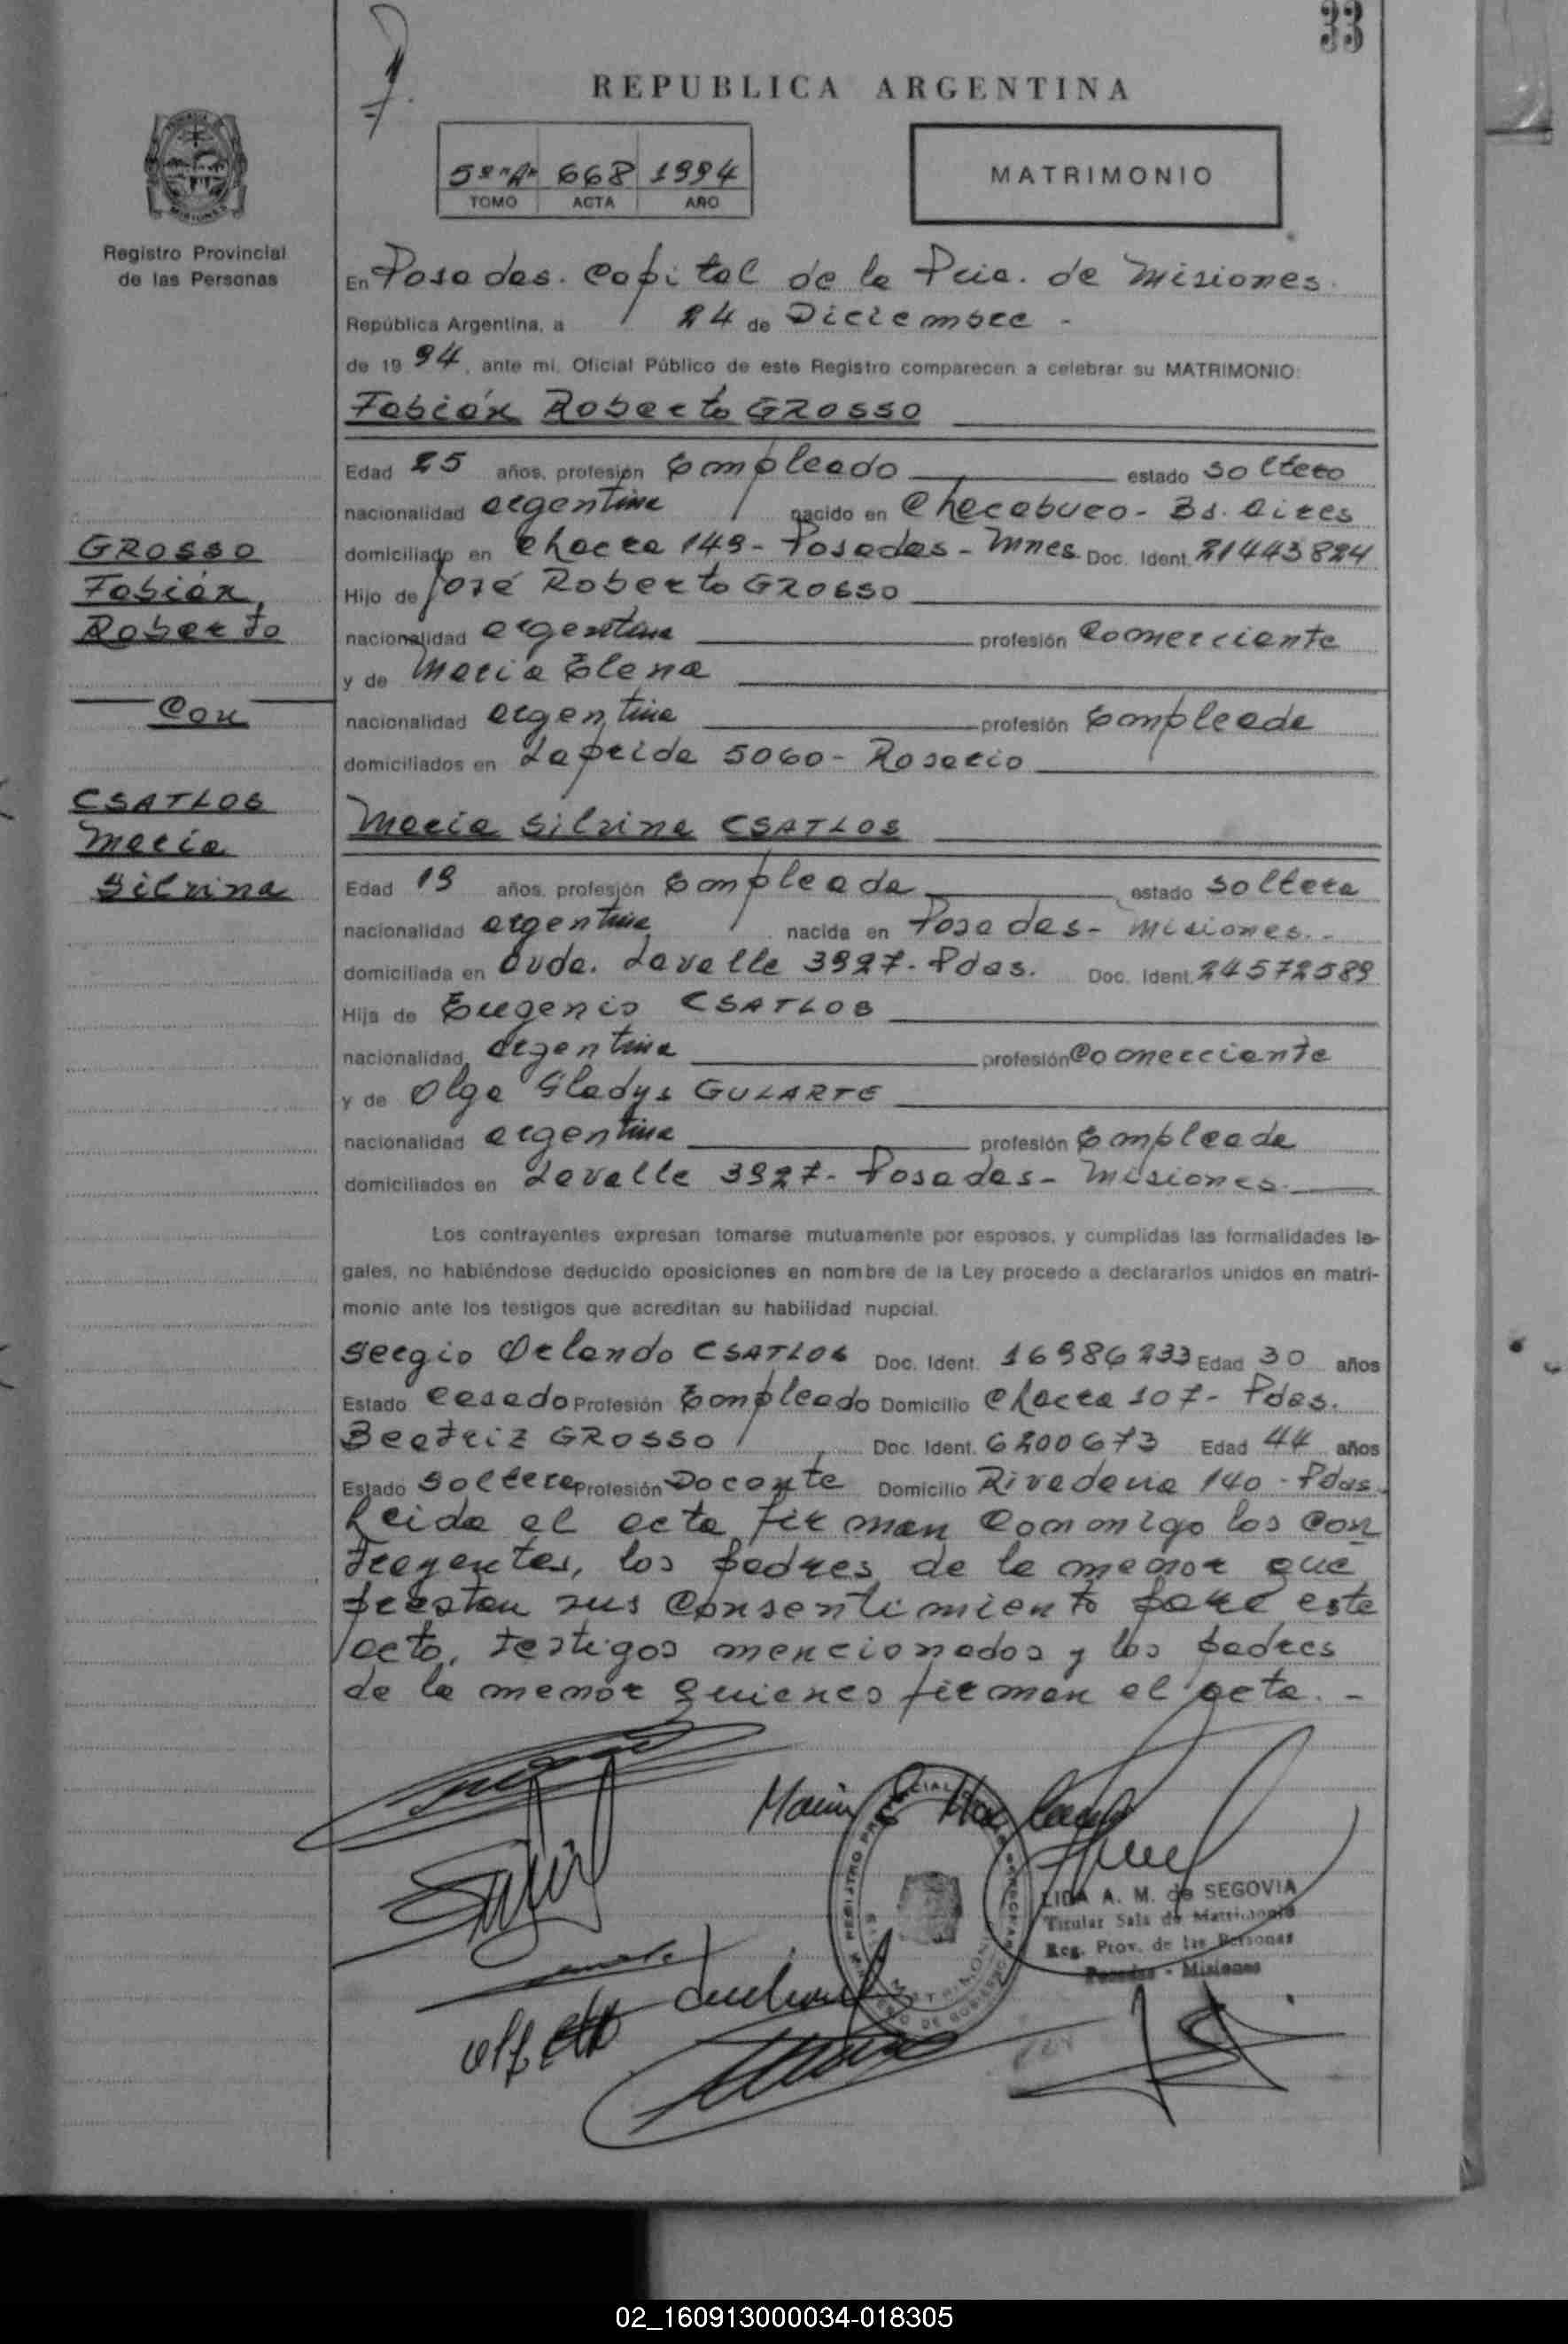 33
REPUBLICA ARGENTINA
5º "A" 668 1994
TOMO ACTA AÑO
MATRIMONIO
Registro Provincial
de las Personas
En Posadas. Capital de la Pcia. de Misiones.
República Argentina, a 24 de Diciembre -
de 1994, ante mi, Oficial Público de este Registro comparecen a celebrar su MATRIMONIO:
Fabián Roberto GROSSO
Edad 25 años, profesión Empleado estado soltero
nacionalidad argentina nacido en Chacabuco - Bs. Aires
domiciliado en Chacra 149 - Posadas - Mnes Doc. Ident. 21443824
Hijo de José Roberto GROSSO
nacionalidad argentina profesión Comerciante
y de María Elena
nacionalidad argentina profesión Empleada
domiciliados en Laprida 5060 - Rosario
GROSSO
Fabián
Roberto
Con
CSATLOS
María
Silvina
María Silvina CSATLOS
Edad 19 años, profesión Empleada estado soltera
nacionalidad argentina nacida en Posadas - Misiones.-
domiciliada en Avda. Lavalle 3927 - Pdas. Doc. Ident. 24572589
Hija de Eugenio CSATLOS
nacionalidad argentina profesión Comerciante
y de Olga Gladys GULARTE
nacionalidad argentina profesión Empleada
domiciliados en Lavalle 3927 - Posadas - Misiones.
Los contrayentes expresan tomarse mutuamente por esposos, y cumplidas las formalidades le-
gales, no habiéndose deducido oposiciones en nombre de la Ley procedo a declararlos unidos en matri-
monio ante los testigos que acreditan su habilidad nupcial.
Sergio Orlando CSATLOS Doc. Ident. 16986233 Edad 30 años
Estado casado Profesión Empleado Domicilio Chacra 107 - Pdas.
Beatriz GROSSO Doc. Ident. 6200673 Edad 44 años
Estado soltera Profesión Docente Domicilio Rivadavia 140 - Pdas.
Leida el acta firman conmigo los con
trayentes, los padres de la menor que
prestan sus consentimiento para este
acto, testigos mencionados y los padres
de la menor quienes firman el acta. -
LIDA A. M. de SEGOVIA
Titular Sala de Matrimonio
Reg. Prov. de las Personas
Posadas - Misiones
02_160913000034-018305